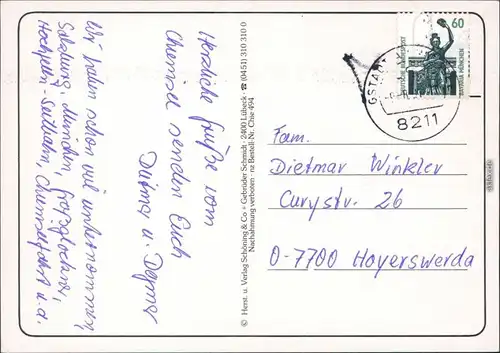 Herzliche Grüße vom
Chiemsee senden Euch
Dietmar u. Dagmar
Wir haben schon viel unternommen,
Salzburg, München, Großglockner,
Hochfelln-Seilbahn, Chiemseefahrt u.a.
© Herst. u. Verlag Schöning & Co + Gebrüder Schmidt · 2400 Lübeck · ☎ (0451) 310 310 0
Nachahmung verboten · nz Bestell-Nr. Chie 494
60
DEUTSCHE BUNDESPOST
BAVARIA MÜNCHEN
GSTADT
8211
Fam.
Dietmar Winkler
Curystr. 26
O-7700 Hoyerswerda